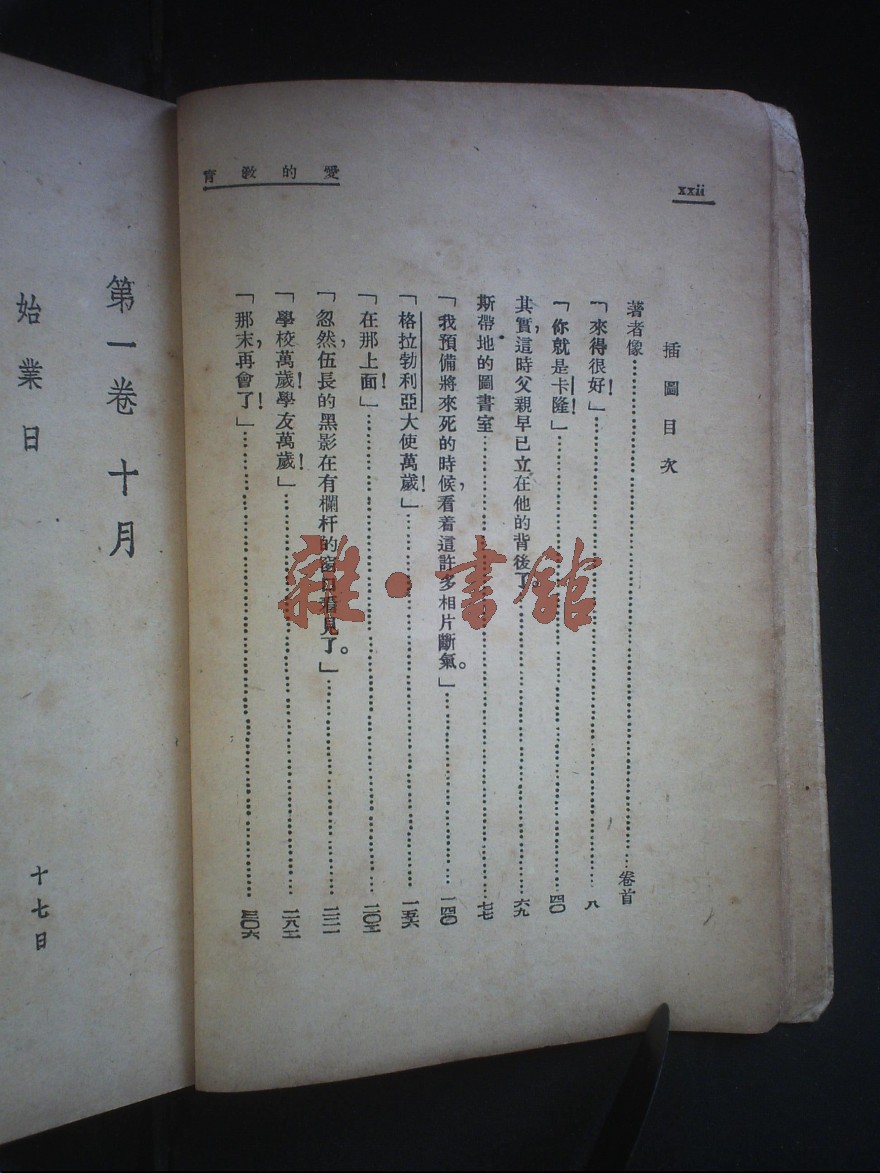 xxii
愛的教育
插圖目次
著者像……卷首
「來得很好！」……八
「你就是卡隆！」……四〇
其實，這時父親早已立在他的背後了。……六九
斯帶地的圖書室……七七
「我預備將來死的時候，看着這許多相片斷氣。」……一四〇
「格拉勃利亞大使萬歲！」……一五六
「在那上面！」……二〇三
「忽然，伍長的黑影在有欄杆的窗口看見了。」……二三一
「學校萬歲！學友萬歲！」……二八二
「那末，再會了！」……三〇六
第一卷 十月
始業日 十七日
雜·書館